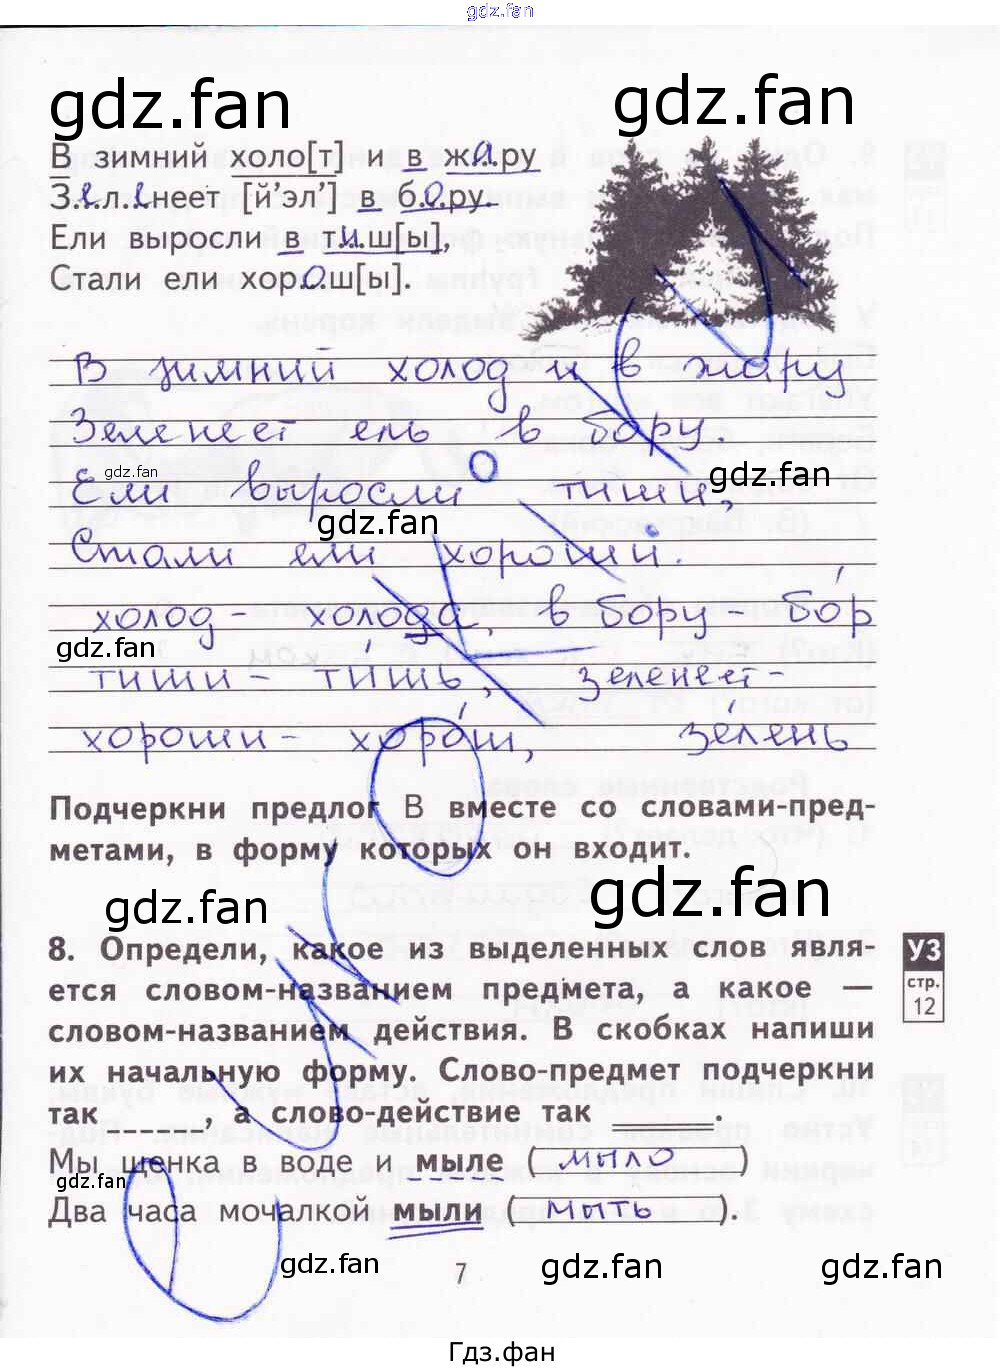 gdz.fan
gdz.fan
gdz.fan
В зимний холо[т] и в жа.ру
З.е.л.е.неет [й'эл'] в б.о.ру.
Ели выросли в т.и.ш[ы],
Стали ели хор.о.ш[ы].
В зимний холод и в жару
Зеленеет ель в бору.
gdz.fan
gdz.fan
Ели выросли тиши,
gdz.fan
Стали ели хороши.
холод - холода, в бору - бор
gdz.fan
тиши - тишь, зеленеет -
хороши - хорош, зелень
Подчеркни предлог В вместе со словами-пред-
метами, в форму которых он входит.
gdz.fan
gdz.fan
8. Определи, какое из выделенных слов явля-
ется словом-названием предмета, а какое —
словом-названием действия. В скобках напиши
их начальную форму. Слово-предмет подчеркни
так ______, а слово-действие так ______.
УЗ
стр.
12
Мы щенка в воде и мыле ( мыло )
gdz.fan
Два часа мочалкой мыли ( мыть ).
gdz.fan
7
gdz.fan
gdz.fan
Гдз.фан